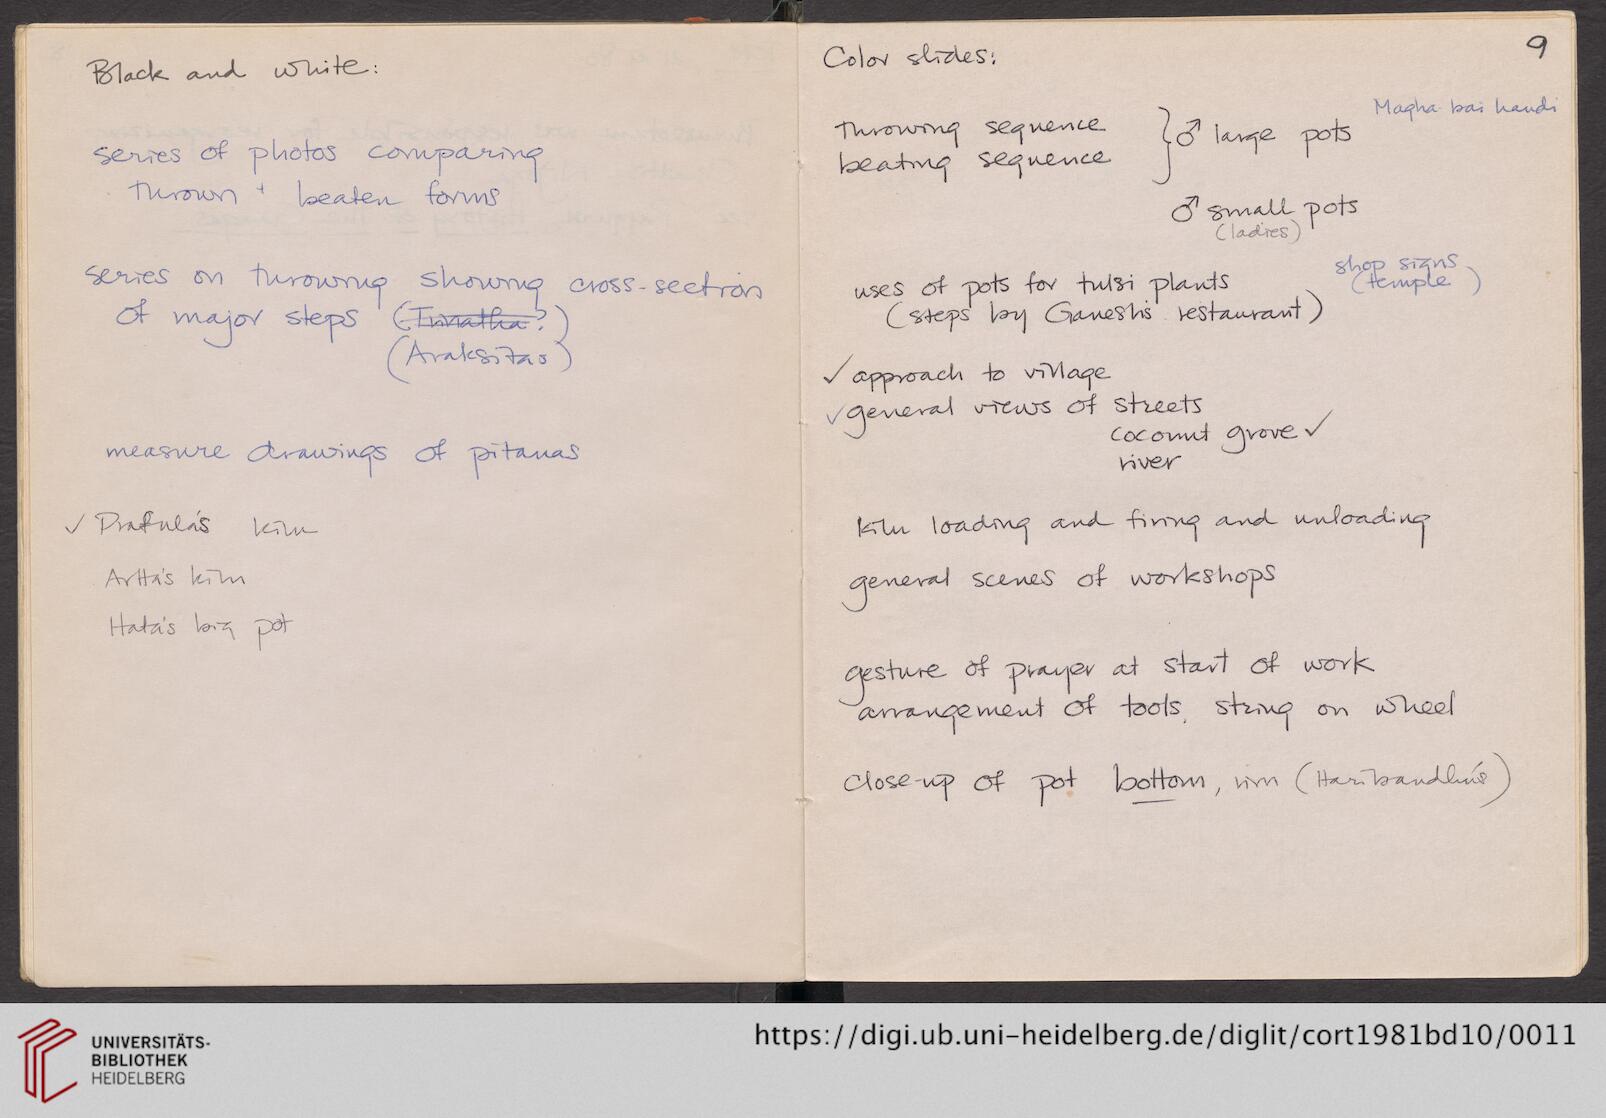 Black and white:
series of photos comparing
thrown + beaten forms
series on throwing showing cross-section
of major steps (Trinatha?)
(Araksitas)
measure drawings of pitanas
✓ Prafula's kiln
Artta's kiln
Hata's big pot
9
Color slides:
Magha bai handi
throwing sequence } ♂ large pots
beating sequence
♂ small pots
(ladies)
shop signs
(temple)
uses of pots for tulsi plants
(steps by Ganesh's restaurant)
✓ approach to village
✓ general views of streets
coconut grove ✓
river
kiln loading and firing and unloading
general scenes of workshops
gesture of prayer at start of work
arrangement of tools, string on wheel
close-up of pot bottom, rim (Haribandhu's)
UNIVERSITÄTS-
BIBLIOTHEK
HEIDELBERG
https://digi.ub.uni-heidelberg.de/diglit/cort1981bd10/0011